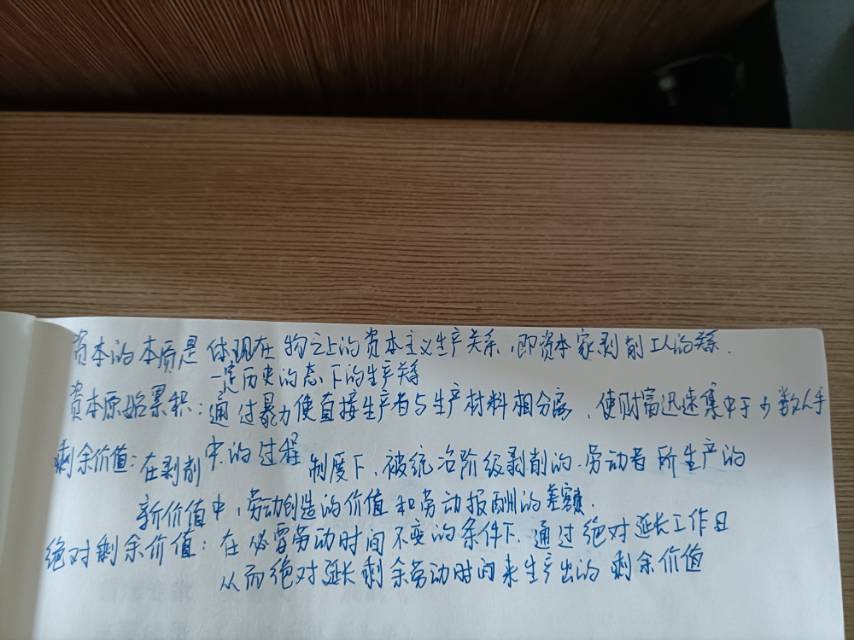 资本的本质是体现在物之上的资本主义生产关系,即资本家剥削工人的关系.
一定历史的态下的生产关系
资本原始累积:通过暴力使直接生产者与生产材料相分离,使财富迅速集中于少数人手
中的过程
剩余价值:在剥削制度下,被统治阶级剥削的,劳动者所生产的
新价值中,劳动创造的价值和劳动报酬的差额.
绝对剩余价值:在必要劳动时间不变的条件下,通过绝对延长工作日
从而绝对延长剩余劳动时间来生产出的剩余价值